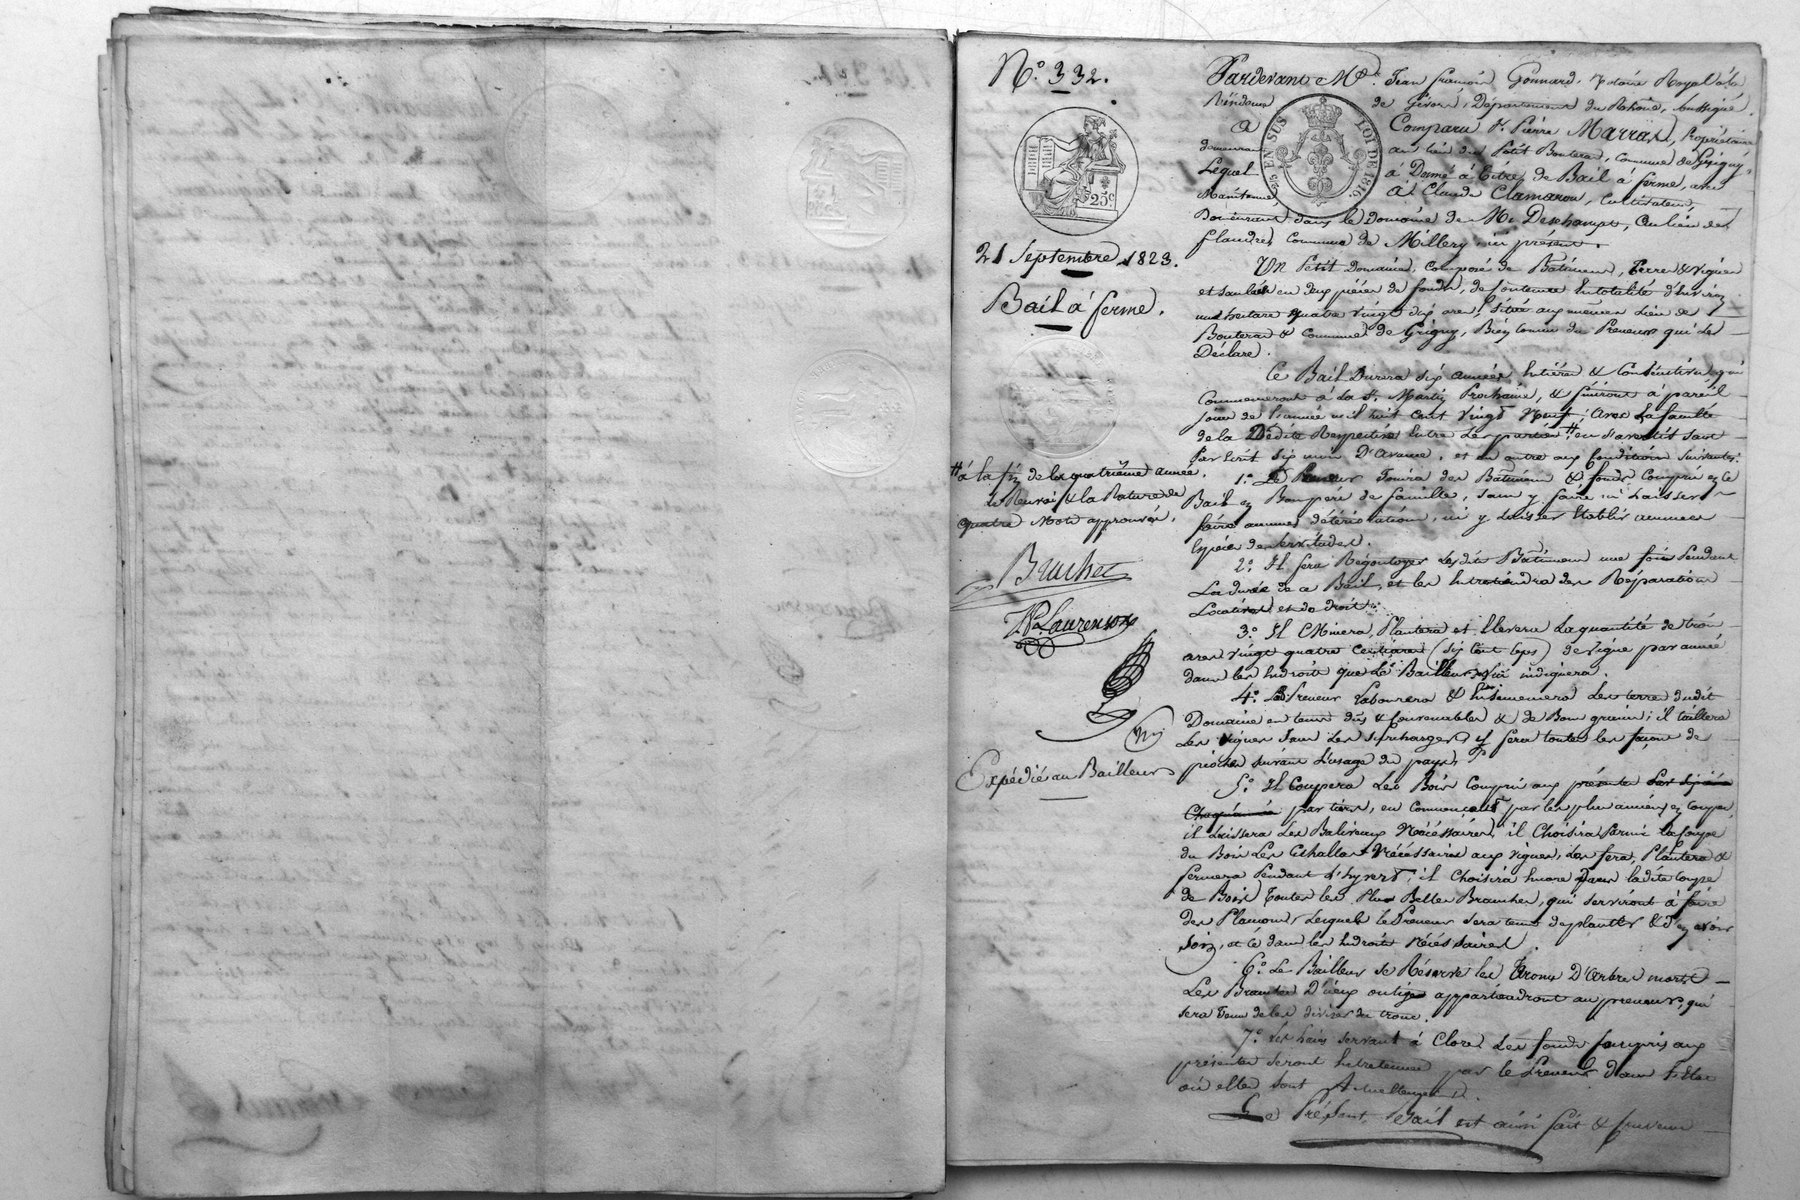 N.° 332.
25c
21 Septembre 1823.
Bail à ferme.
# à la fin de la quatrième année.
le Renvoi & la Rature de
quatre Mots approuvés.
Bruchet
Laurenson
Expédié au Bailleur
Pardevant M.e Jean françois Gonnard, Notaire Royal à la
Résidence de Givors, Département du Rhône, soussigné.
EN SUS LOI DE 1816
A Comparu S.r Pierre Marrat, Propriétaire
demeurant au lieu du Petit Bouteras, Commune de Grigny,
Lequel à Donné à titre de Bail à ferme, avec
Maintenue, à S.r Claude Clamaron, Cultivateur,
Demeurant dans le Domaine de Mr Deschamps, au lieu des
flandres Commune de Millery, ici présent.
Un Petit Domaine, Composé de Batimens, Terres & vignes
et saulées en deux pièces de fonds, de contenue En totalité d'environ
un hectare quatre vingt dix ares, Situés aux mêmes lieu de
Bouteras & Commune de Grigny, Bien connu du Preneur qui Le
Déclare.
Ce Bail Durera six années Entières & Consécutives, qui
Commenceront à La S.t Martin Prochaine, & finiront à pareil
jour de l'année mil huit cent vingt Neuf, avec La faculté
de la Dédite Respective Entre Les parties # en s'avertissant
Par Ecrit six mois D'avance, et en outre aux Conditions suivantes:
1.° Le Preneur Jouira des Batimens & fonds Compris en ce
Bail en Bon père de famille, sans y faire ni Laisser
faire aucunes détériorations, ni y Laisser Etablir aucunes
Espèces de servitudes.
2.° Il fera Régouttoyer Lesdits Batimens une fois Pendant
La durée de ce Bail, et les Entretiendra des Réparations
Locatives et de droit.
3.° Il Minera, Plantera et Elevera La quantité de trois
ares vingt quatre Centiares (six Cent Ceps) de vigne par année
dans les Endroits que Le Bailleur lui indiquera.
4.° Le Preneur Labourera & Ensemencera Les terres dudit
Domaine en tems dûs & Convenables & de Bons grains; il taillera
Les vignes sans Les surcharger, y fera toutes les façons de
pioches suivant L'usage du pays.
5.° Il Coupera Les Bois Compris aux présentes
par tiers, en Commençant par les plus anciens en Coupe,
il Laissera Les Baliveaux Nécéssaires, il Choisira Parmi la Coupe
du Bois Les Echallats Nécéssaires aux vignes, Les fera, Plantera &
fermera Pendant L'hyvert; il Choisira Encore Dans Ladite Coupe
de Bois Toutes les Plus Belles Branches, qui serviront à faire
des Plançons, Lesquels le Preneur sera tenu de planter & d'en avoir
Soin, et ce dans les Endroits Nécéssaires.
6.° Le Bailleur se Réserve les Troncs D'arbres morts,
Les Branches D'iceux ou tiges appartiendront au preneur, qui
sera Tenu de les diviser du tronc.
7.° Les haies servant à Clore Les fonds Compris aux
présentes seront Entretenues par le Preneur dans L'Etat
où elles sont Actuellement.
Le Présent Bail est ainsi fait & Convenu